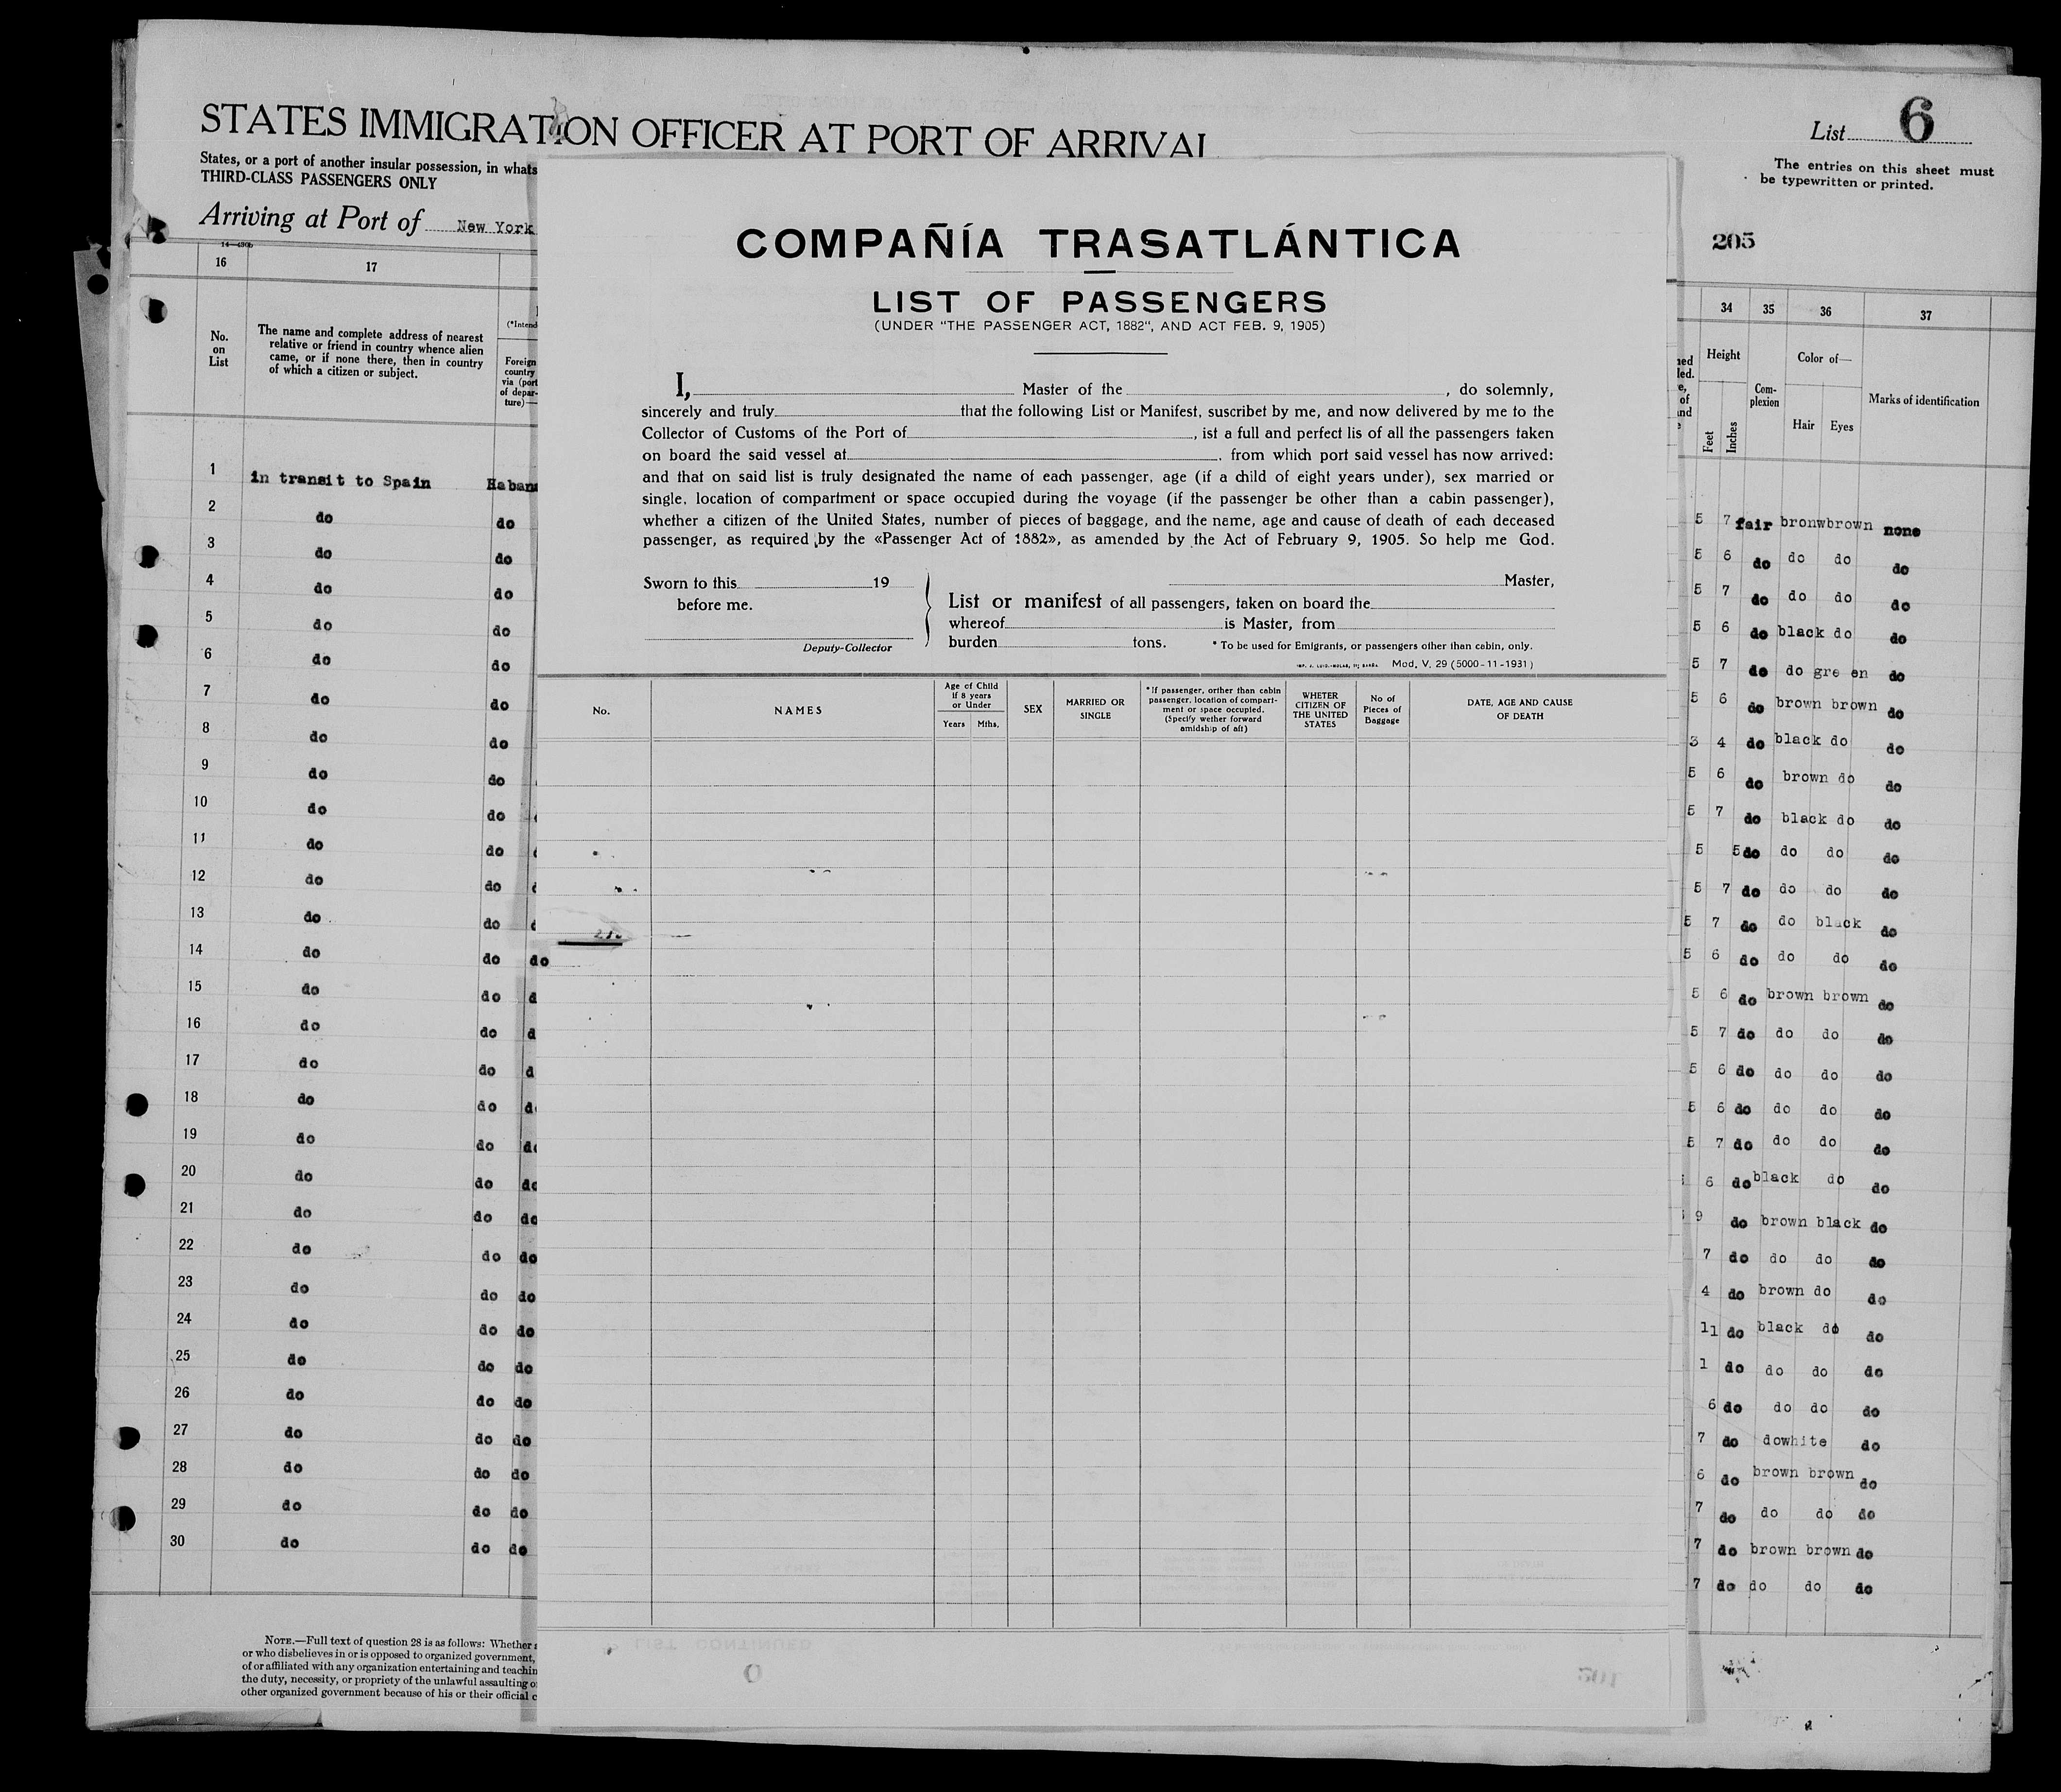 STATES IMMIGRATION OFFICER AT PORT OF ARRIVAL
List 6
States, or a port of another insular possession, in whats
THIRD-CLASS PASSENGERS ONLY
The entries on this sheet must
be typewritten or printed.
Arriving at Port of New York
205
14—430b
16 17
No.
on
List
The name and complete address of nearest
relative or friend in country whence alien
came, or if none there, then in country
of which a citizen or subject.
(*Intend
Foreign
country
via (port
of depar-
ture)—
1 in transit to Spain Haban
2 do do
3 do do
4 do do
5 do do
6 do do
7 do do
8 do do
9 do do
10 do do
11 do do
12 do do
13 do do
14 do do do
15 do do d
16 do do d
17 do do d
18 do do d
19 do do do
20 do do do
21 do do do
22 do do do
23 do do do
24 do do do
25 do do do
26 do do do
27 do do do
28 do do do
29 do do do
30 do do do
NOTE.—Full text of question 28 is as follows: Whether
or who disbelieves in or is opposed to organized government,
of or affiliated with any organization entertaining and teachin
the duty, necessity, or propriety of the unlawful assaulting o
other organized government because of his or their official c
COMPAÑÍA TRASATLÁNTICA
LIST OF PASSENGERS
(UNDER "THE PASSENGER ACT, 1882", AND ACT FEB. 9, 1905)
I, Master of the , do solemnly,
sincerely and truly that the following List or Manifest, suscribet by me, and now delivered by me to the
Collector of Customs of the Port of , ist a full and perfect lis of all the passengers taken
on board the said vessel at , from which port said vessel has now arrived:
and that on said list is truly designated the name of each passenger, age (if a child of eight years under), sex married or
single, location of compartment or space occupied during the voyage (if the passenger be other than a cabin passenger),
whether a citizen of the United States, number of pieces of baggage, and the name, age and cause of death of each deceased
passenger, as required by the «Passenger Act of 1882», as amended by the Act of February 9, 1905. So help me God.
Sworn to this 19
before me.
Deputy-Collector
Master,
List or manifest of all passengers, taken on board the
whereof is Master, from
burden tons. * To be used for Emigrants, or passengers other than cabin, only.
Mod. V. 29 (5000-11-1931)
No.
NAMES
Age of Child
if 8 years
or Under
Years Mths.
SEX
MARRIED OR
SINGLE
*If passenger, orther than cabin
passenger, location of compart-
ment or space occupied.
(Specify wether forward
amidship of aft)
WHETER
CITIZEN OF
THE UNITED
STATES
No of
Pieces of
Baggage
DATE, AGE AND CAUSE
OF DEATH
LIST CONTINUED
34 35 36 37
Height
Feet
Inches
Com-
plexion
Color of—
Hair Eyes
Marks of identification
5 7 fair bronwbrown none
5 6 do do do do
5 7 do do do do
5 6 do black do do
5 7 do do gre en do
5 6 do brown brown do
3 4 do black do do
5 6 do brown do do
5 7 do black do do
5 5do do do do
5 7 do do do do
5 7 do do black do
5 6 do do do do
5 6 do brown brown do
5 7 do do do do
5 6 do do do do
5 6 do do do do
5 7 do do do do
6 do black do do
9 do brown black do
7 do do do do
4 do brown do do
11 do black do do
1 do do do do
6 do do do do
7 do dowhite do
6 do brown brown do
7 do do do do
7 do brown brown do
7 do do do do